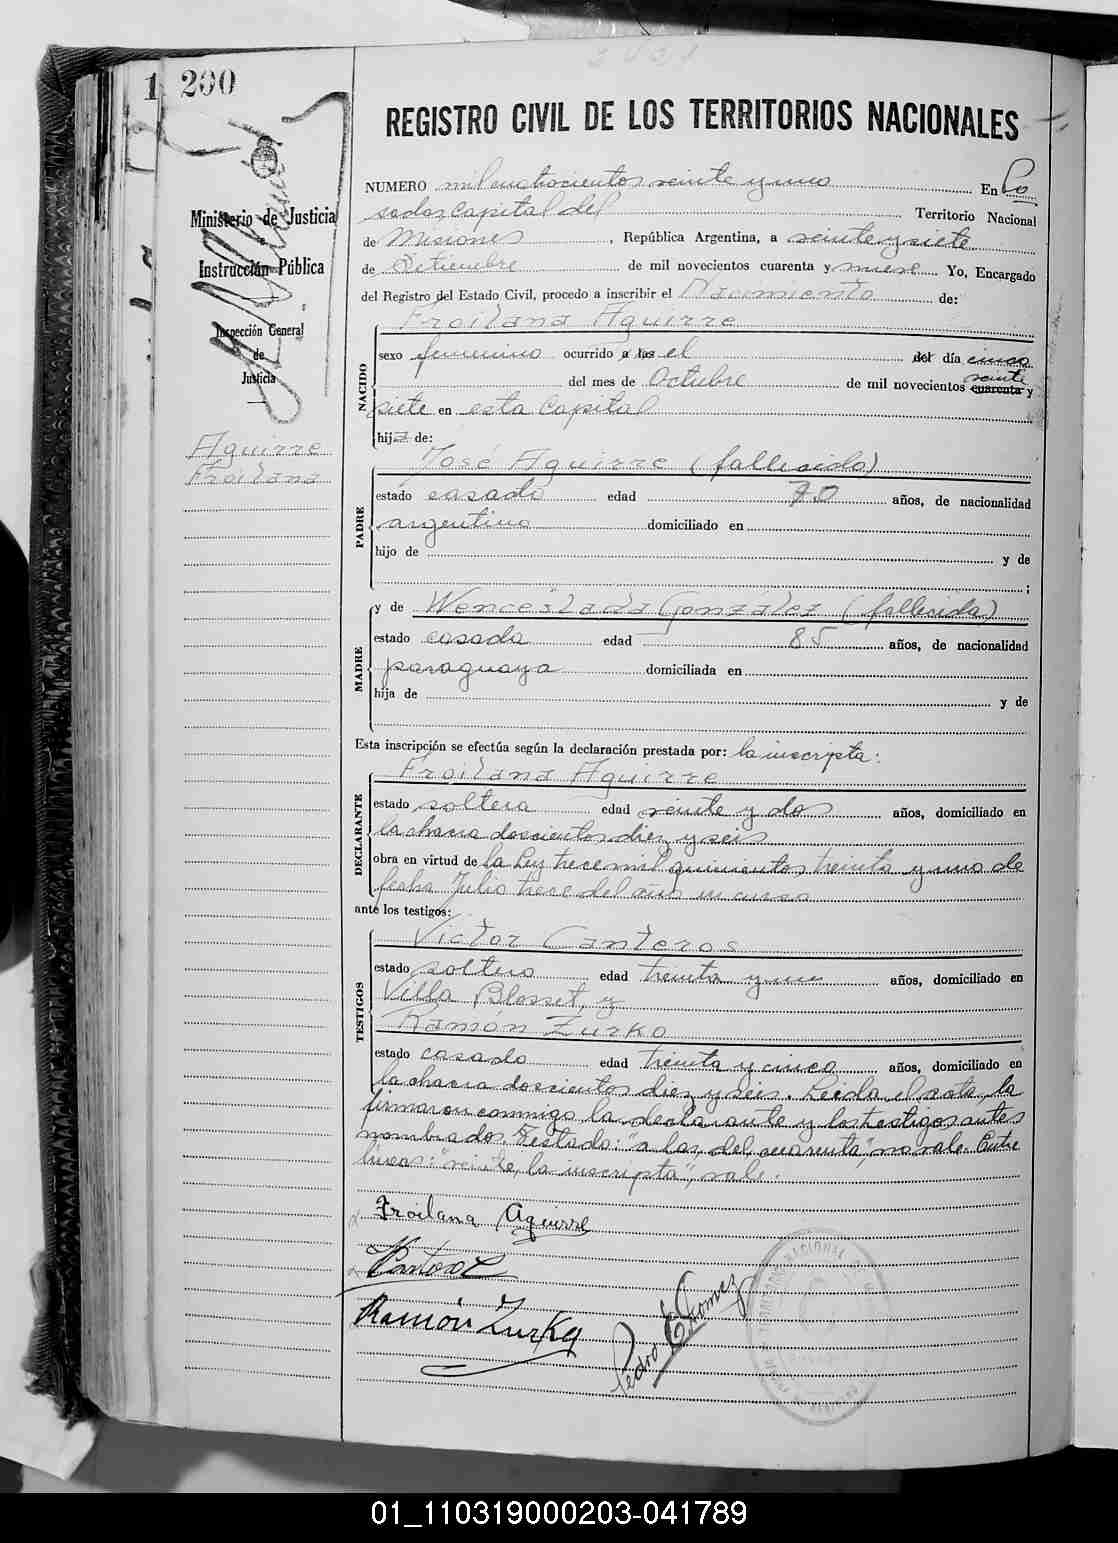 200
REGISTRO CIVIL DE LOS TERRITORIOS NACIONALES
Ministerio de Justicia
e
Instrucción Pública
Inspección General
de
Justicia
Aguirre
Froilana
NUMERO mil cuatrocientos veinte y uno En Po
sadas Capital del Territorio Nacional
de Misiones, República Argentina, a veinte y siete
de Setiembre de mil novecientos cuarenta y nueve Yo, Encargado
del Registro del Estado Civil, procedo a inscribir el Nacimiento de:
NACIDO
Froilana Aguirre
sexo femenino ocurrido a las el del día cinco
veinte
del mes de Octubre de mil novecientos cuarenta y
siete en esta Capital
hija de:
PADRE
José Aguirre (fallecido)
estado casado edad 70 años, de nacionalidad
argentino domiciliado en
hijo de y de
;
MADRE
y de Wenceslada González (fallecida)
estado casada edad 85 años, de nacionalidad
paraguaya domiciliada en
hija de y de
Esta inscripción se efectúa según la declaración prestada por: la inscripta:
DECLARANTE
Froilana Aguirre
estado soltera edad veinte y dos años, domiciliado en
la chacra doscientos diez y seis
obra en virtud de la Ley trece mil quinientos treinta y uno de
fecha Julio trece del año en curso
ante los testigos:
TESTIGOS
Victor Canteros
estado soltero edad treinta y un años, domiciliado en
Villa Blosset, y
Ramón Zurko
estado casado edad treinta y cinco años, domiciliado en
la chacra doscientos diez y seis. Leída el acta, la
firmaron conmigo la declarante y los testigos antes
nombrados. Testado: "a las, del, cuarenta", no vale. Entre
líneas: "veinte, la inscripta", vale.
Froilana Aguirre
Ramón Zurko
Pedro E Gomez
01_110319000203-041789